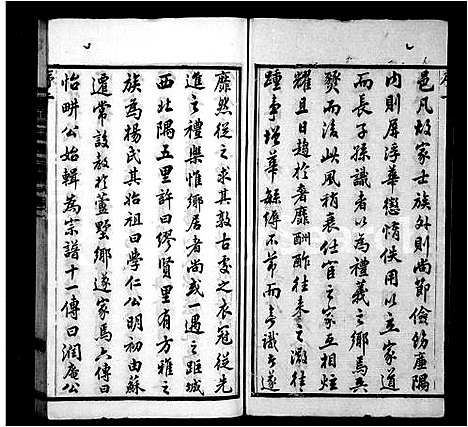 邑凡故家士族外則尚節儉飭廉隅
內則屏浮華懲惰佚用以立家道
而長子孫識者以為禮義之鄉焉兵
燹而後此風稍衰仕宦之家互相炫
耀且日趨於奢靡酬酢往來之漱往
踵事增華縟不節而無識者遂
靡然從之求其敦古處之衣冠從先
進之禮樂惟鄉居者尚或一遇之距城
西北隅五里許曰繆賢里有方雅之
族為楊氏其始祖曰學仁公明初由蘇
遷常設教於萱墅鄉遂家焉六傳曰
怡畊公始輯為宗譜十一傳曰潤庵公